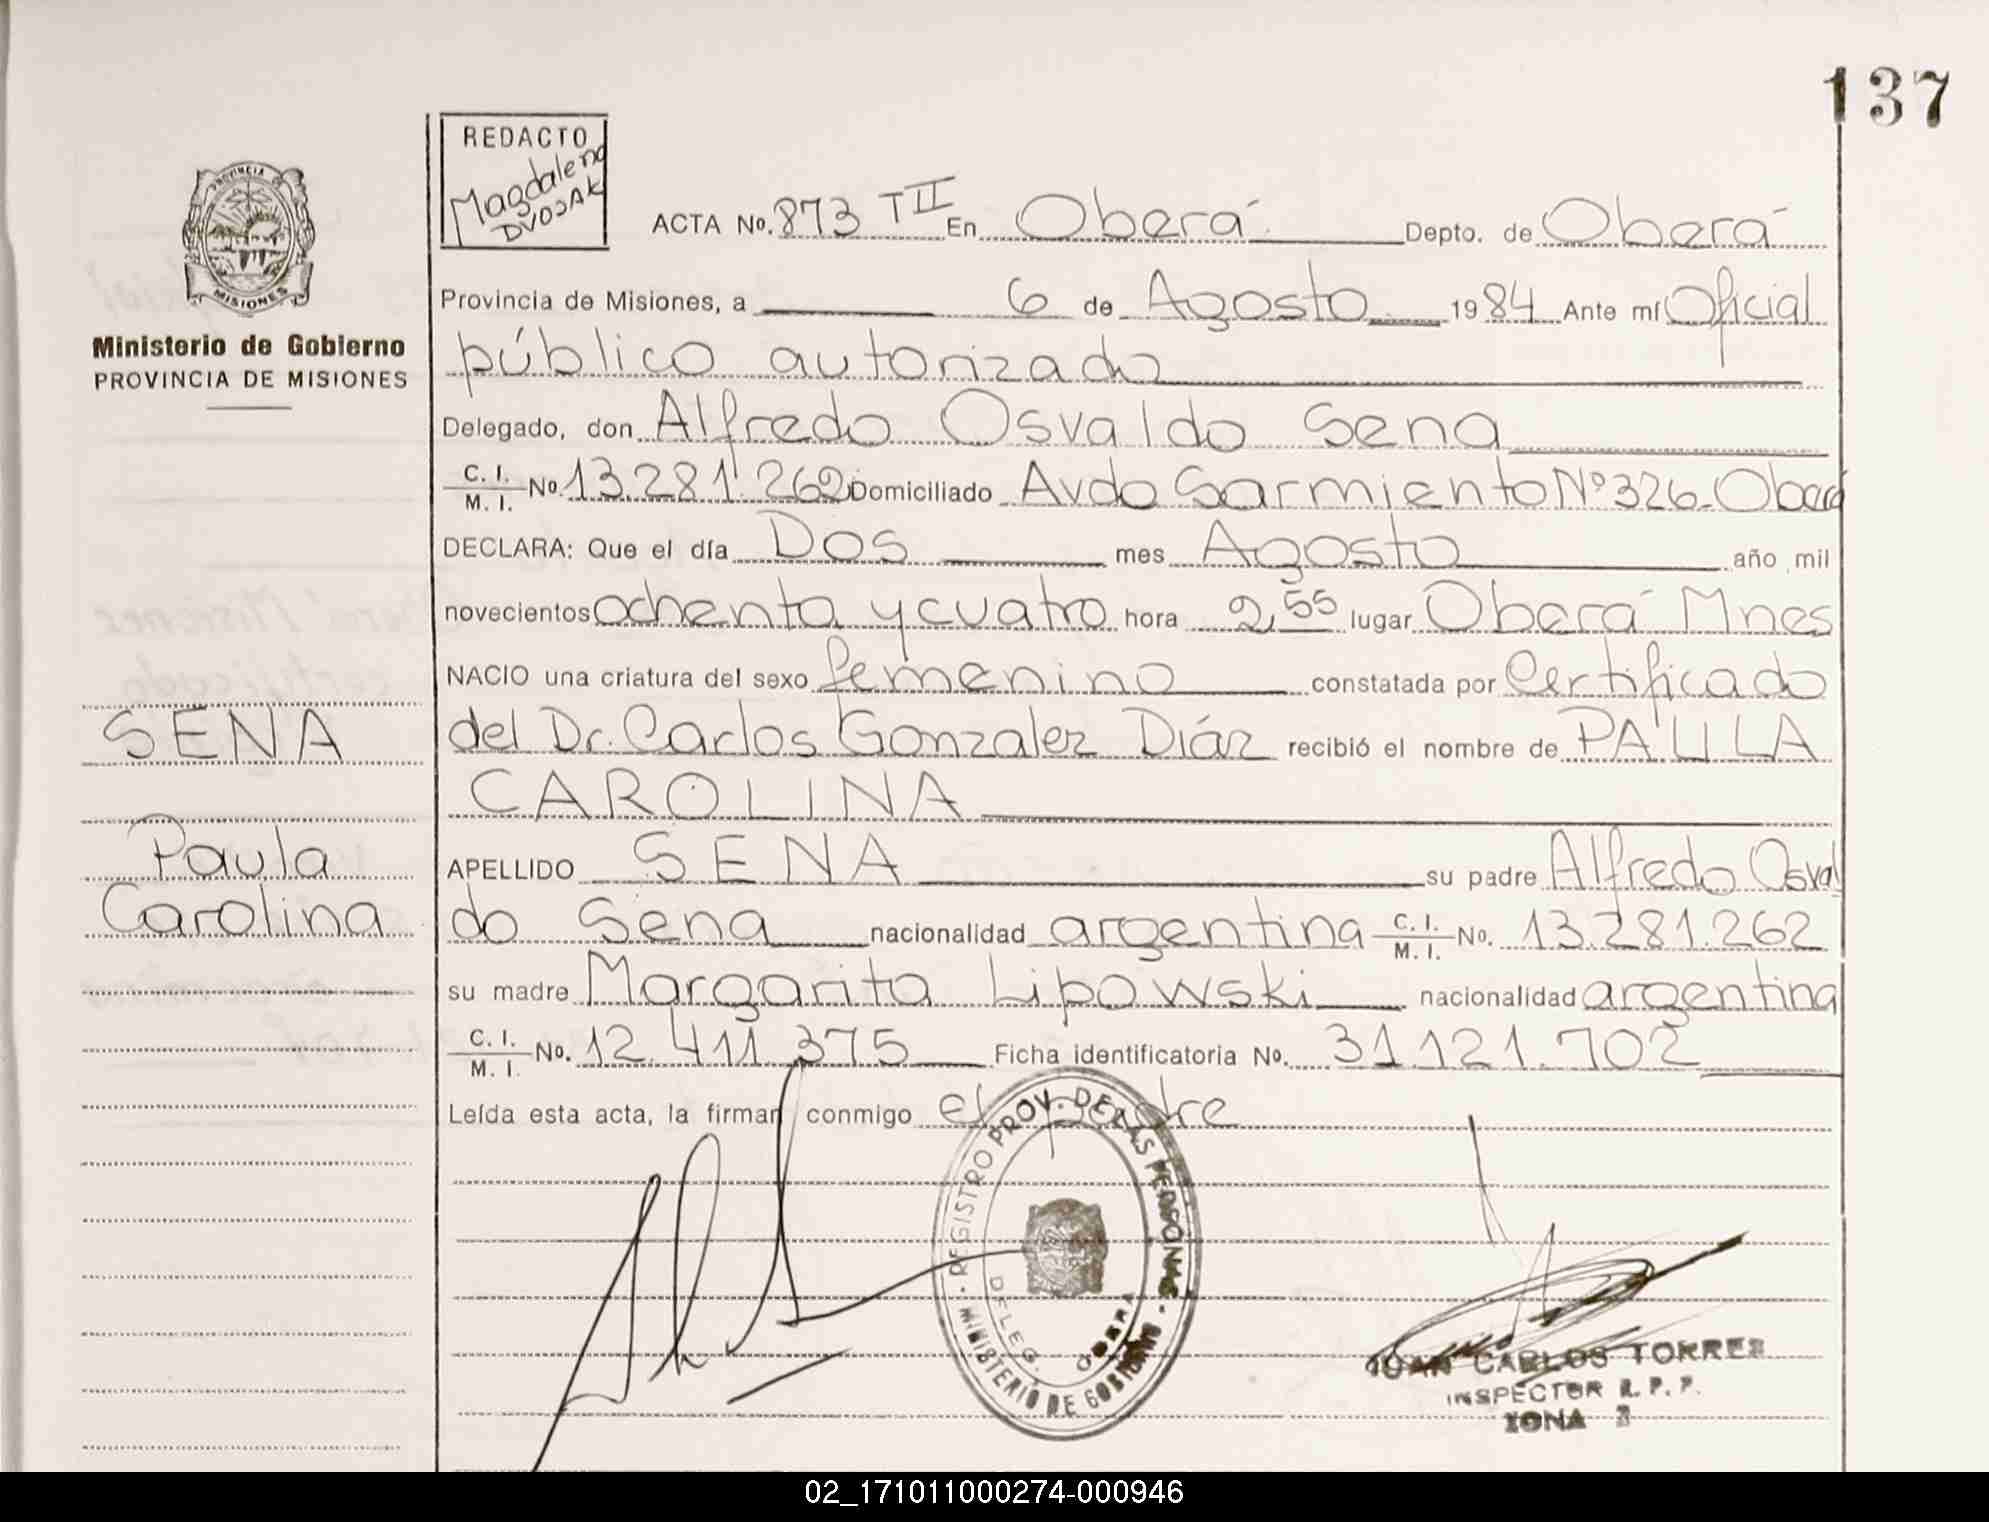 137
REDACTO
Magdalena
DVOJAK
PROVINCIA DE
MISIONES
Ministerio de Gobierno
PROVINCIA DE MISIONES
ACTA No. 873 TII En Oberá Depto. de Oberá
Provincia de Misiones, a 6 de Agosto 1984 Ante mí Oficial
público autorizado
Delegado, don Alfredo Osvaldo Sena
C. I. / M. I. No. 13.281.262 Domiciliado Avda Sarmiento Nº 326-Oberá
DECLARA: Que el día Dos mes Agosto año mil
novecientos ochenta y cuatro hora 2,55 lugar Oberá Mnes
NACIO una criatura del sexo femenino constatada por Certificado
del Dr. Carlos Gonzalez Díaz recibió el nombre de PAULA
CAROLINA
APELLIDO SENA su padre Alfredo Osval
do Sena nacionalidad argentina C. I. / M. I. No. 13.281.262
su madre Margarita Lipowski nacionalidad argentina
C. I. / M. I. No. 12.411.375 Ficha identificatoria No. 31.121.702
Leída esta acta, la firman conmigo el padre
SENA
Paula
Carolina
REGISTRO PROV. DE LAS PERSONAS
MINISTERIO DE GOBIERNO
DELEG. OBERA
JUAN CARLOS TORRES
INSPECTOR R. P. P.
ZONA
02_171011000274-000946